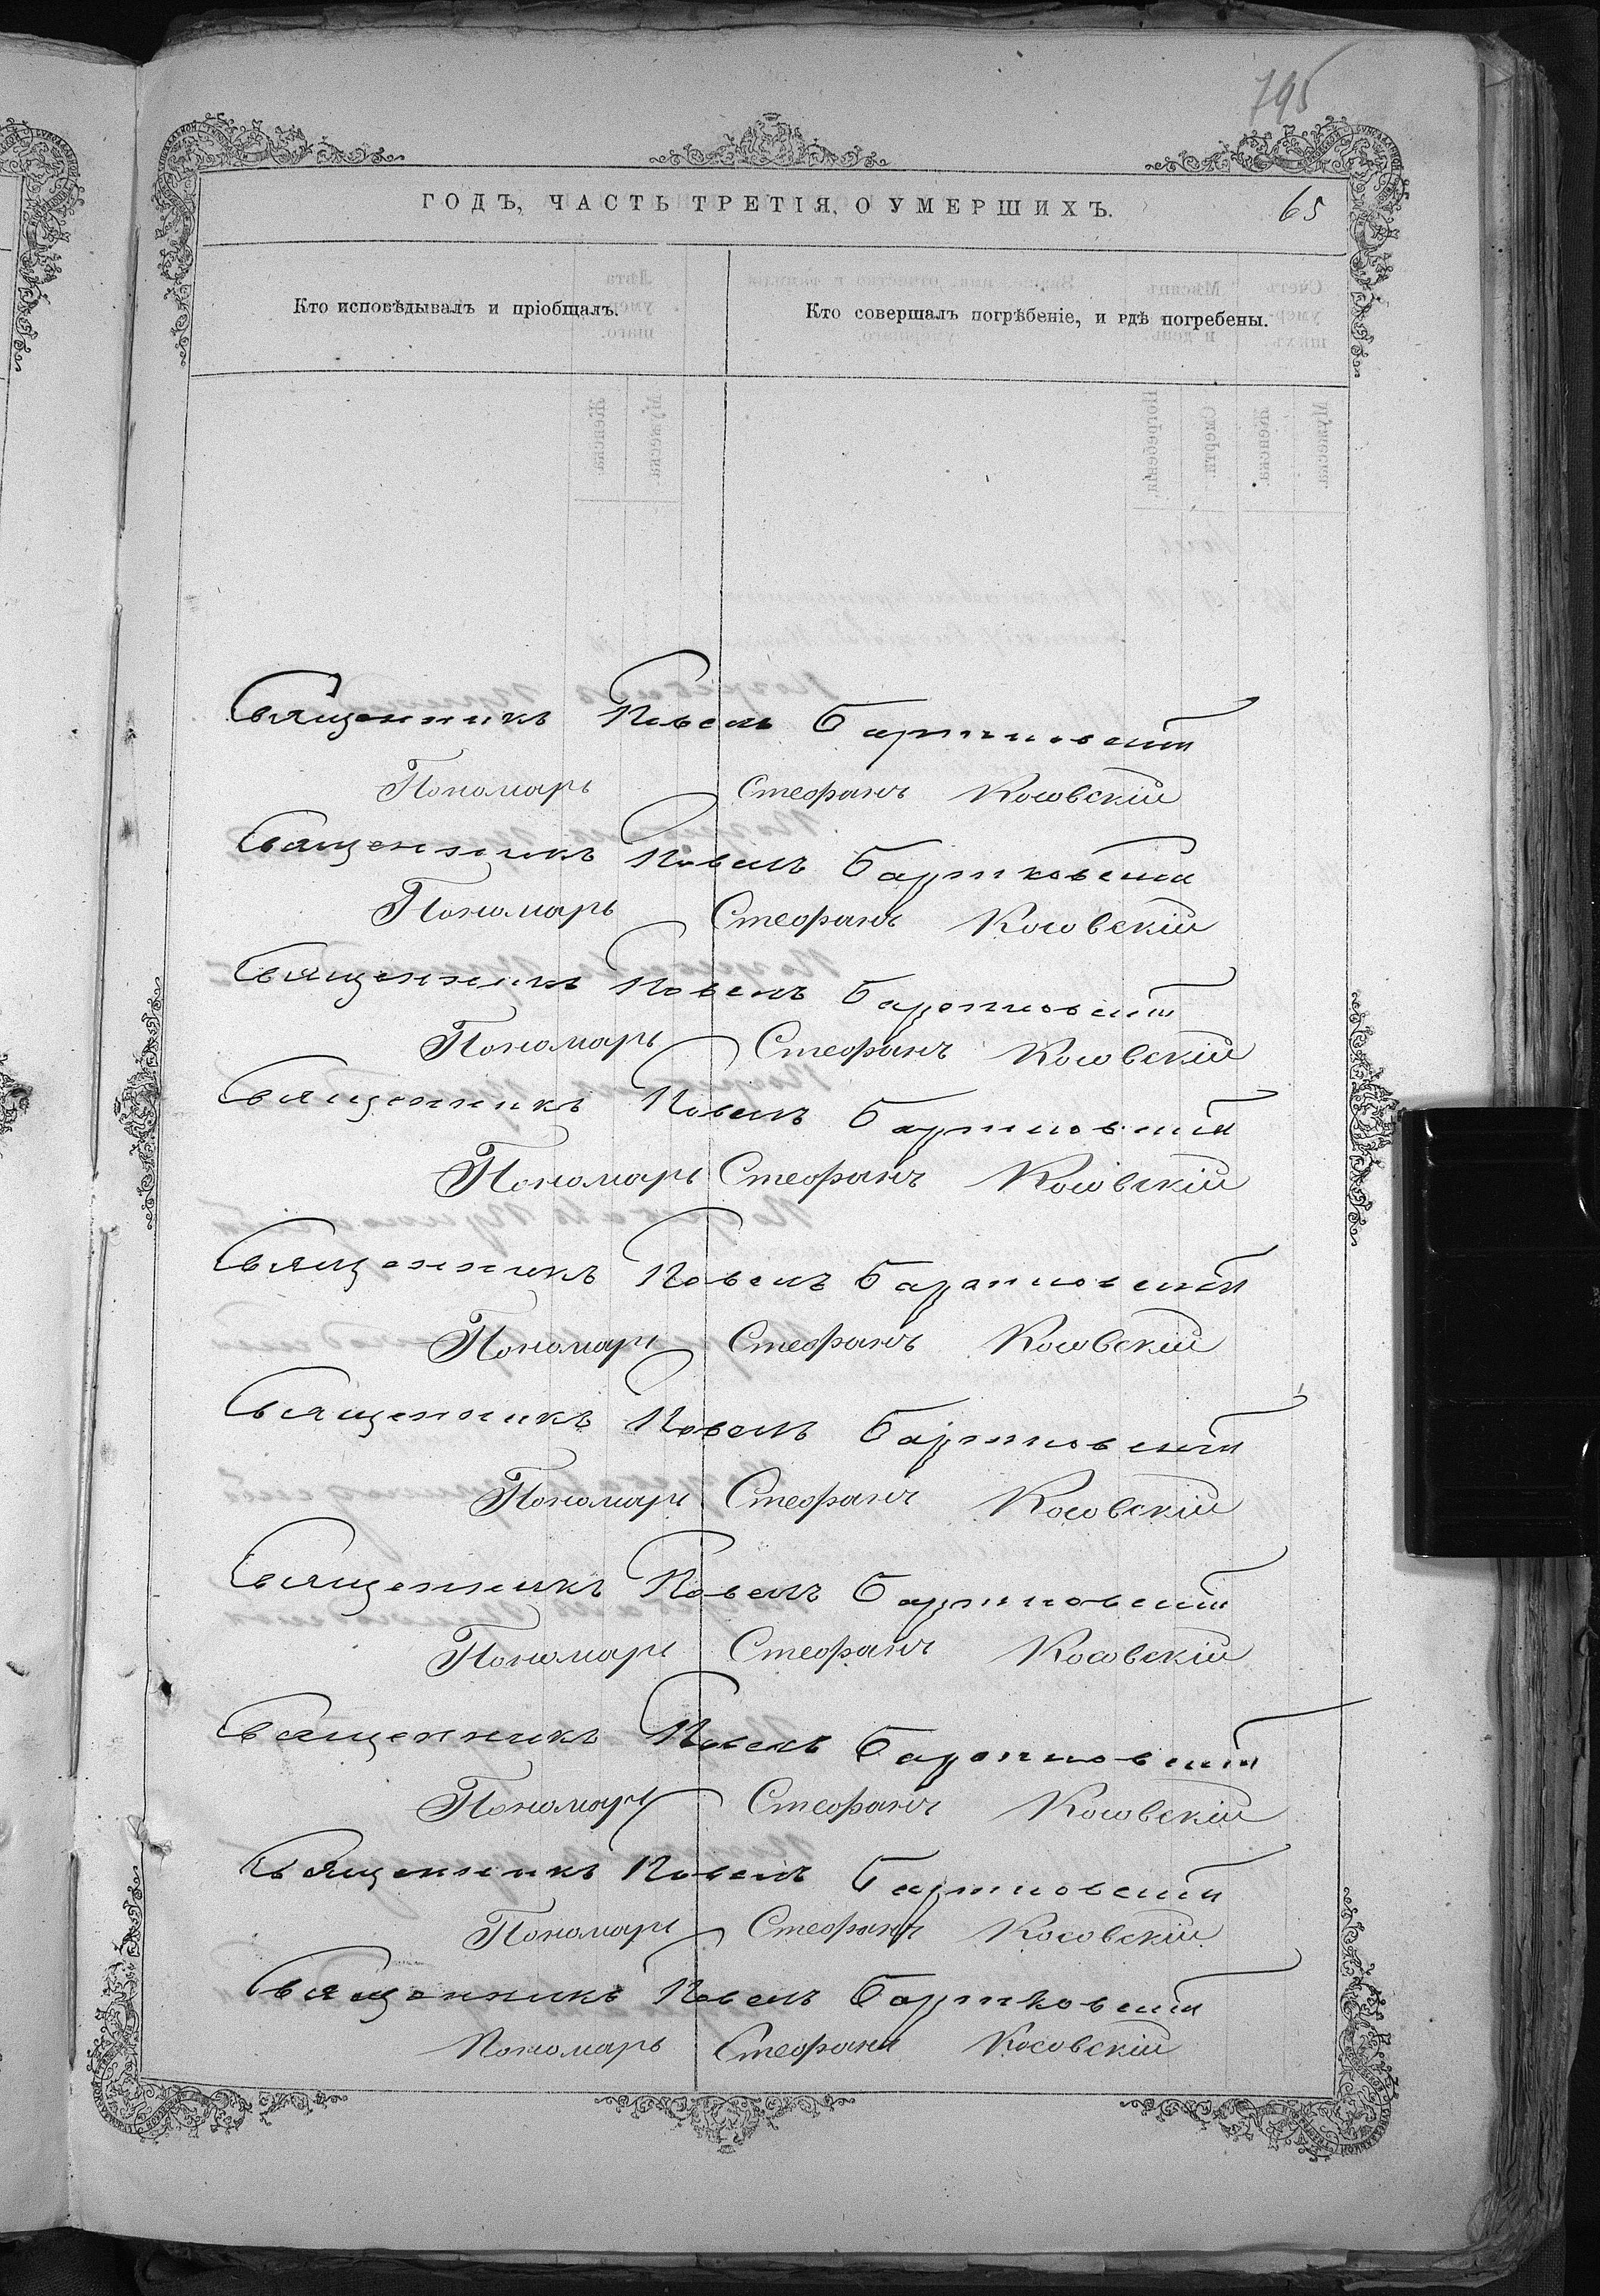 795
ГОДЪ, ЧАСТЬ ТРЕТІЯ, О УМЕРШИХЪ.
65
Кто исповѣдывалъ и пріобщалъ.
Кто совершалъ погрѣбеніе, и гдѣ погребены.
Священникъ Павелъ Бартковскій
Пономарь Стефанъ Косовскій
Священникъ Павелъ Бартковскій
Пономарь Стефанъ Косовскій
Священникъ Павелъ Бартковскій
Пономарь Стефанъ Косовскій
Священникъ Павелъ Бартковскій
Пономарь Стефанъ Косовскій
Священникъ Павелъ Бартковскій
Пономарь Стефанъ Косовскій
Священникъ Павелъ Бартковскій
Пономарь Стефанъ Косовскій
Священникъ Павелъ Бартковскій
Пономарь Стефанъ Косовскій
Священникъ Павелъ Бартковскій
Пономарь Стефанъ Косовскій
Священникъ Павелъ Бартковскій
Пономарь Стефанъ Косовскій
Священникъ Павелъ Бартковскій
Пономарь Стефанъ Косовскій